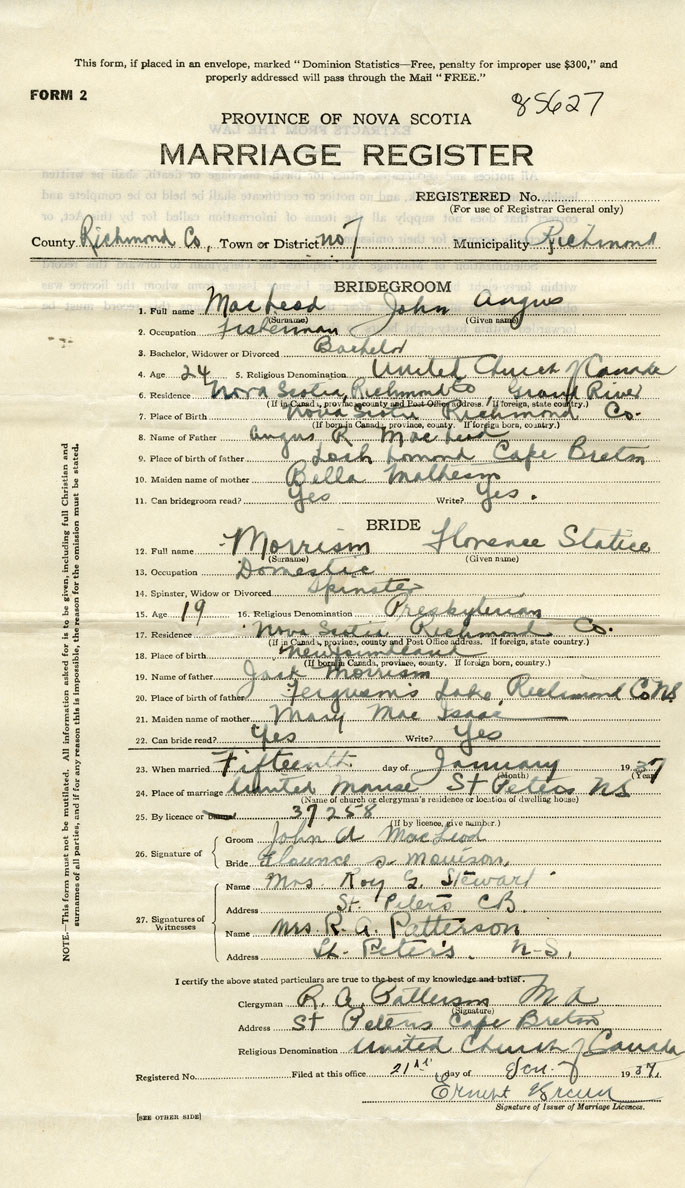 This form, if placed in an envelope, marked "Dominion Statistics—Free, penalty for improper use $300," and
properly addressed will pass through the Mail "FREE."
FORM 2
85627
PROVINCE OF NOVA SCOTIA
MARRIAGE REGISTER
REGISTERED No.
(For use of Registrar General only)
County Richmond Co., Town or District no 7 Municipality Richmond
BRIDEGROOM
1. Full name MacLeod John Angus
(Surname) (Given name)
2. Occupation Fisherman
3. Bachelor, Widower or Divorced Bachelor
4. Age 24 5. Religious Denomination United Church of Canada
6. Residence Nova Scotia, Richmond Co Grand River
(If in Canada, province, county and Post Office address. If foreign, state country.)
7. Place of Birth Nova Scotia Richmond Co.
(If born in Canada, province, county. If foreign born, country.)
8. Name of Father Angus R. MacLeod
9. Place of birth of father Loch Lomond Cape Breton
10. Maiden name of mother Bella Matheson
11. Can bridegroom read? Yes Write? Yes.
BRIDE
12. Full name Morrison Florence Statice
(Surname) (Given name)
13. Occupation Domestic
14. Spinster, Widow or Divorced Spinster
15. Age 19 16. Religious Denomination Presbyterian
17. Residence Nova Scotia Richmond Co.
(If in Canada, province, county and Post Office address. If foreign, state country.)
18. Place of birth Newfoundland
(If born in Canada, province, county. If foreign born, country.)
19. Name of father Jack Morrison
20. Place of birth of father Ferguson's Lake, Richmond Co NS
21. Maiden name of mother Mary Mac Isaac
22. Can bride read? Yes Write? Yes
23. When married Fifteenth day of January 1937
(Month) (Year)
24. Place of marriage United Manse St Peters NS
(Name of church or clergyman's residence or location of dwelling house)
25. By licence or 37258
(If by licence, give number.)
26. Signature of
Groom John A MacLeod
Bride Florence S. Morrison.
27. Signatures of Witnesses
Name Mrs. Roy G. Stewart
Address St. Peter's C.B.
Name Mrs. R. A. Patterson
Address St. Peter's. N.S.
I certify the above stated particulars are true to the best of my knowledge and belief.
Clergyman R. A. Patterson M A
(Signature)
Address St Peters Cape Breton
Religious Denomination United Church of Canada
Registered No. Filed at this office 21st day of Jan. 1937.
Ernest
Signature of Issuer of Marriage Licences.
[SEE OTHER SIDE]
NOTE.—This form must not be mutilated. All information asked for is to be given, including full Christian and
surnames of all parties, and if for any reason this is impossible, the reason for the omission must be stated.